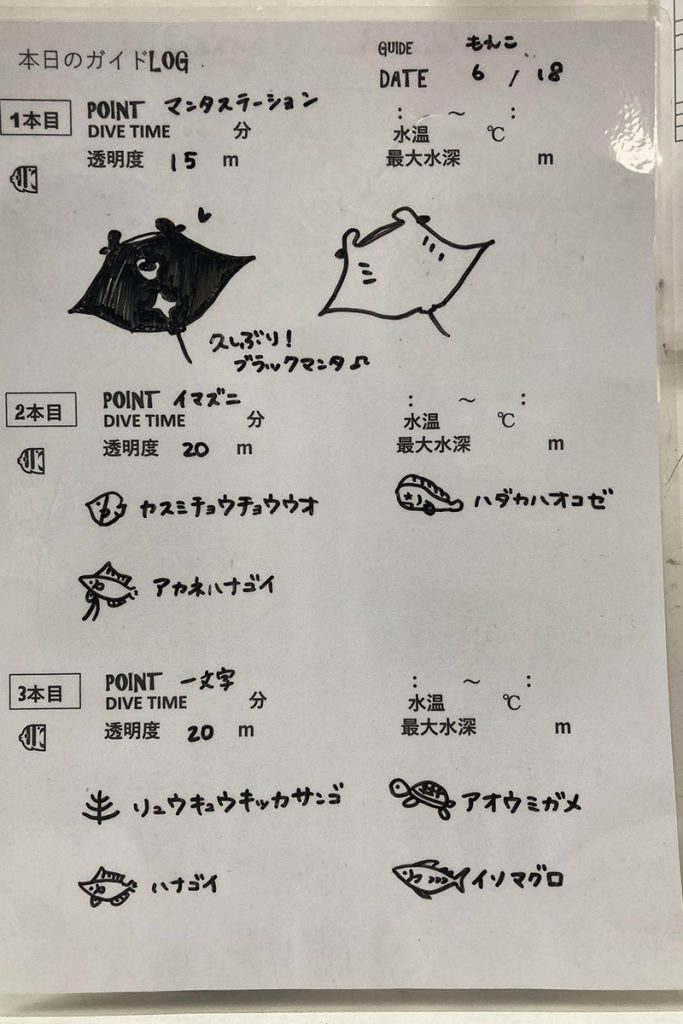 本日のガイドLOG
GUIDE もえこ
DATE 6 / 18
1本目 POINT マンタステーション
： ～ ：
DIVE TIME 分
水温 ℃
透明度 15 m
最大水深 m
久しぶり！
ブラックマンタ♫
2本目 POINT イマズニ
： ～ ：
DIVE TIME 分
水温 ℃
透明度 20 m
最大水深 m
カスミチョウチョウウオ
ハダカハオコゼ
アカネハナゴイ
3本目 POINT 一文字
： ～ ：
DIVE TIME 分
水温 ℃
透明度 20 m
最大水深 m
リュウキュウキッカサンゴ
アオウミガメ
ハナゴイ
イソマグロ